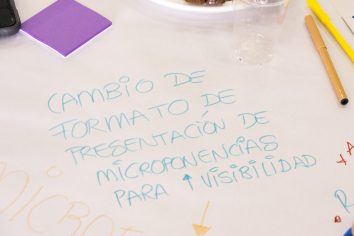 CAMBIO DE
FORMATO DE
PRESENTACIÓN DE
MICROPONENCIAS
PARA ↑ VISIBILIDAD